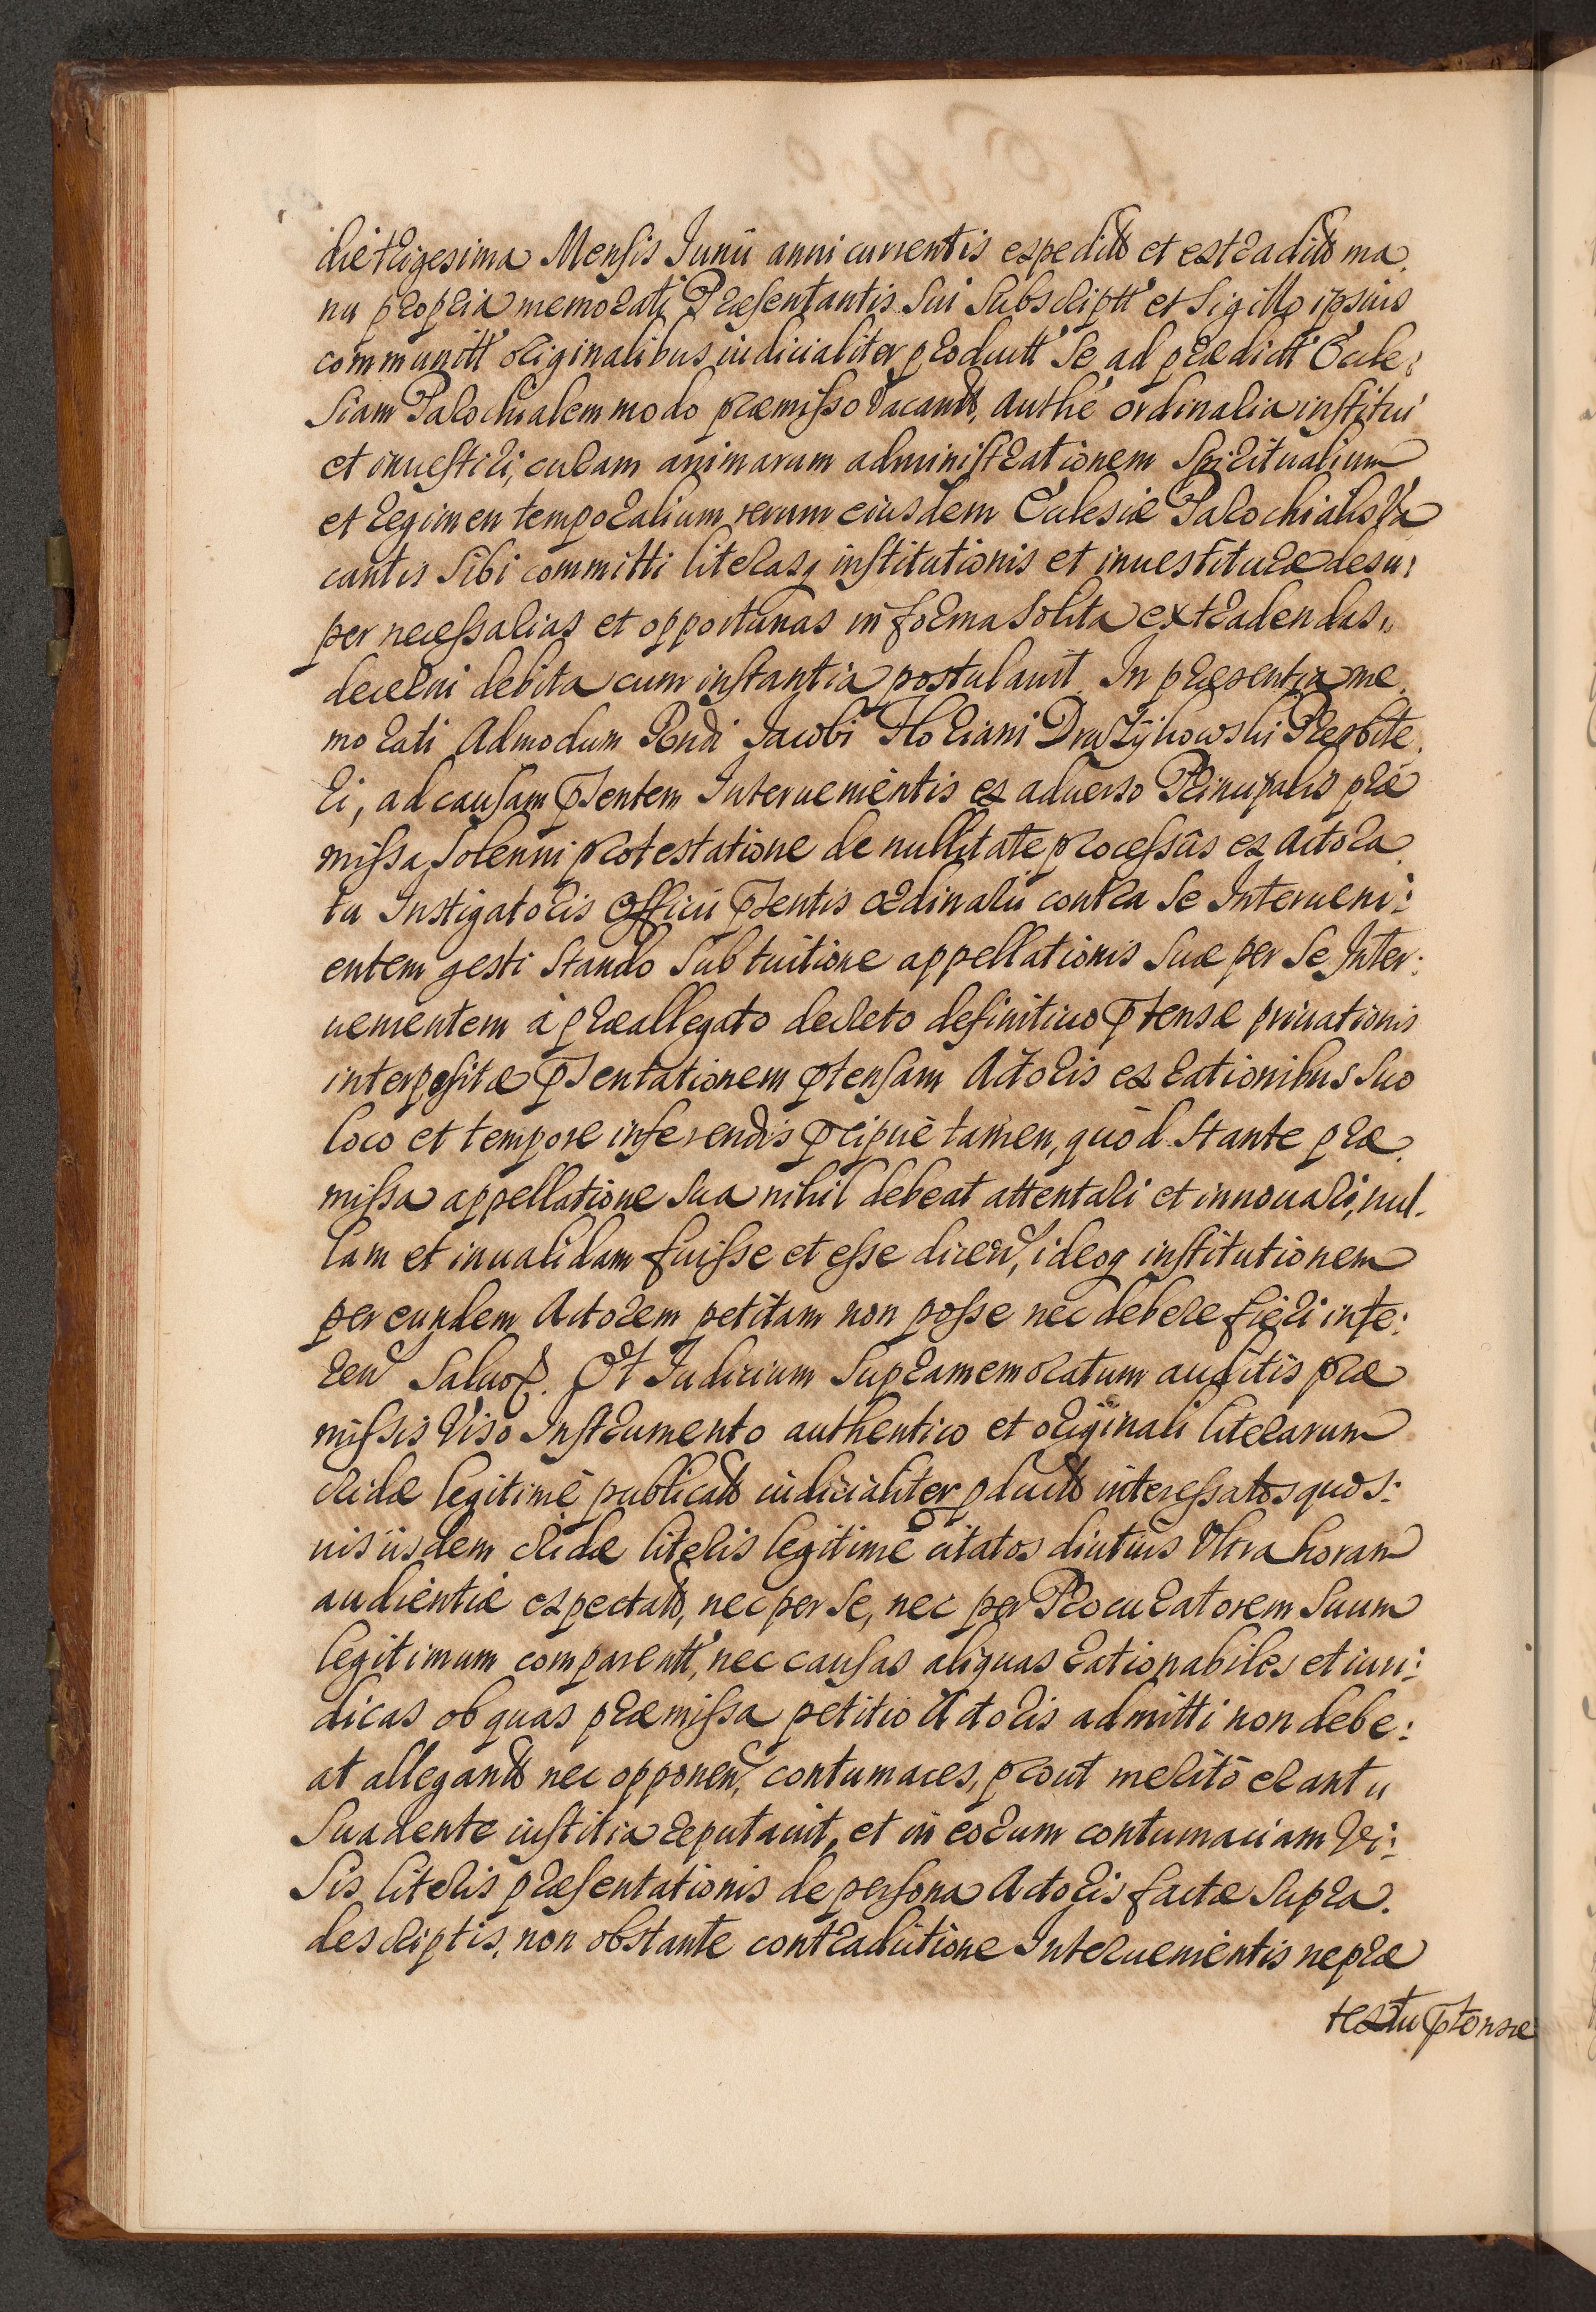 die trigesima Mensis Junii anni currentis expedit. et extradit. ma
nu propria memorati Præsentantis sui subscriptt. et sigillo ipsius
communitt. originalibus iudicialiter productt. se ad prædictt. Eccle:
siam Parochialem modo præmisso vacant. Authe ordinaria institui
et inuestiri, curam animarum administrationem spiritualium
et regimen temporalium rerum eiusdem Ecclesiæ Parochialis Va
cantis sibi committi literasq institutionis et inuestituræ desu:
per necessarias et opportunas in forma solita extradendas,,
decerni debita cum instantia postulauit. In præsentia me
morati Admodum Rndi Jacobi Floriani Druzÿkowski Presbite
ri, ad causam pñtem Interuenientis ex aduerso Principalis præ
missa solenni protestatione de nullitate processûs ex Actora
tu Instigatoris Officii pñtis ordinarii contra se Interueni:
entem gesti stando sub tuitione appellationis suæ per se Inter:
uenientem à præallegato decreto definitiuo ptensæ priuationis
interpositæ pñtationem ptensam Actoris ex rationibus suo
loco et tempore inferendis pcipuè tamen, quòd stante præ
missa appellatione sua nihil debeat attentari et innouari, nul.
lam et inualidam fuisse et esse dicen, ideoq institutionem
per eundem Actorem petitam non posse nec debere fieri infe:
ren saluo. Et Iudicium supramemoratum auditis præ
missis Viso Instrumento authentico et originali literarum
cridæ legitimè publicat. iudicialiter pduct. interessatos quos:
uis iisdem cridæ literis legitimè citatos diutius Vltra horam
audientiæ expectat., nec per se, nec per Procuratorem suum
legitimum comparentt. nec causas aliquas rationabiles et iuri:
dicas ob quas præmissa petitio Actoris admitti non debe:
at allegant. nec opponen. contumaces, prout meritò erant,,
suadente iustitia reputauit, et in eorum contumaciam Vi:
sis literis præsentationis de persona Actoris factæ supra.
descriptis, non obstante contradictione Interuenientis ne præ
textu ptensæ